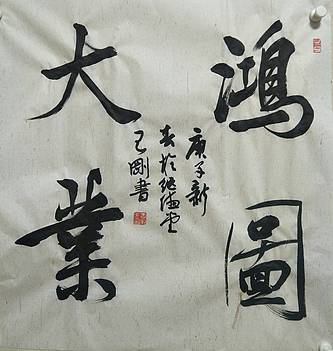 鴻圖
大業
庚子新
春於堂
剛書